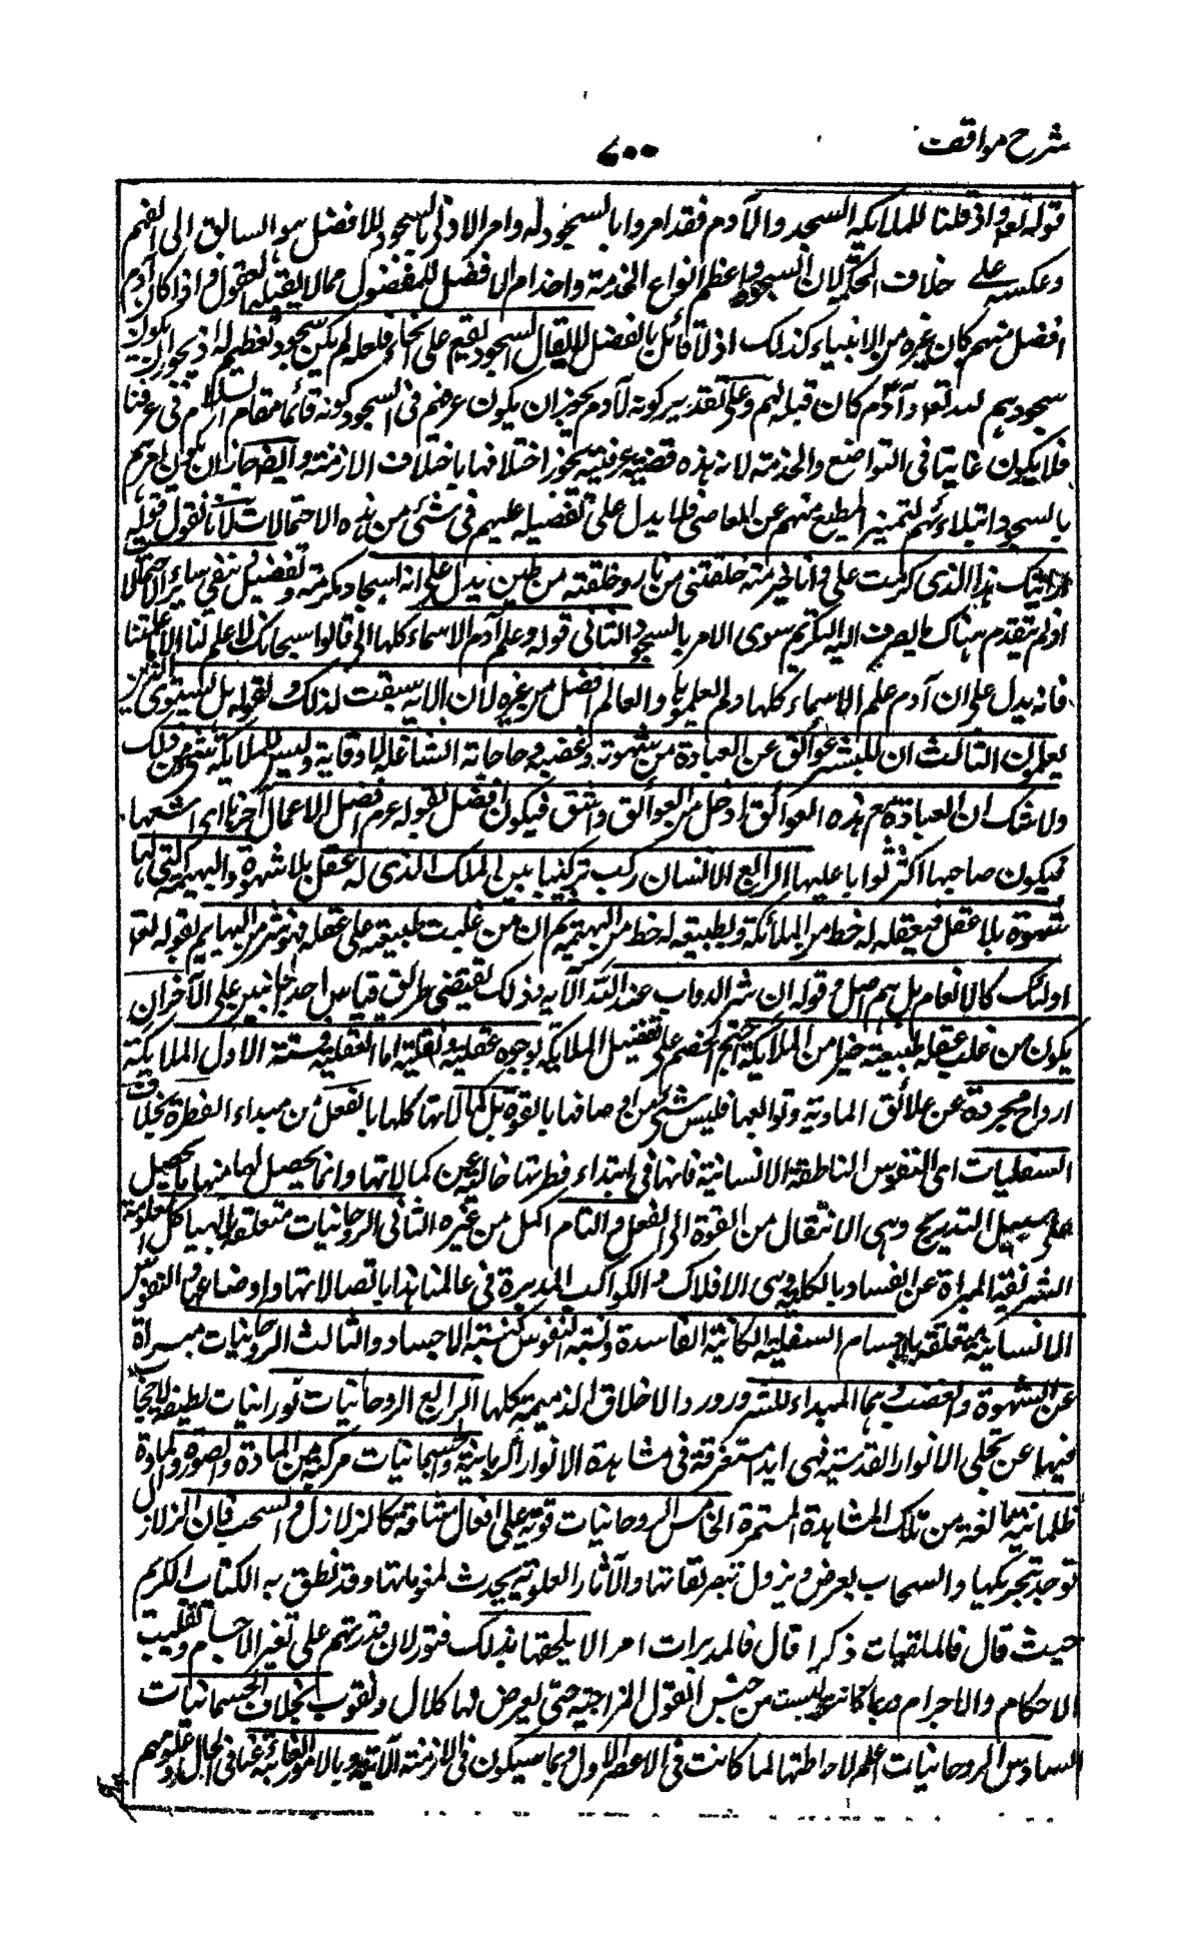 شرح مواقف
٧٠٠
قوله تعالى واذ قلنا للملايكة اسجدوا لآدم فقد امروا بالسجود له وامر الادنى بالسجود للافضل هو السابق الى الفهم
وعكسه على خلاف الحكمة لان السجود اعظم انواع الخدمة واخدام الافضل للمفضول مما لا يقبله العقول واذا كان آدم
افضل منهم كان غيره من الانبياء كذلك اذ لا قائل بالفصل لا يقال السجود يقع على انحاء فلعله لم يكن سجود تعظيم له اذ يجوز ان يكون
سجودهم لله تعالى وآدم كان قبلة لهم وعلى تقدير كونه لآدم يجوز ان يكون عرفهم فى السجود كونه قائما مقام السلام فى عرفنا
فلا يكون غاية فى التواضع والخدمة لان هذه قضية عرفية يجوز اختلافها باختلاف الازمنة وايضا جاز ان يكون امرهم
بالسجود ابتلاء لهم لتميز المطيع منهم عن العاصى فلا يدل على تفضيله عليهم فى شئ من هذه الاحتمالات لانا نقول قوله
ارايتك هذا الذى كرمت على وانا خير منه خلقتنى من نار وخلقته من طين يدل على انه اسجاد تكرمة وتفضيل وتنفى سائر الاحتمالات
اذ لم يتقدم هناك ما يصرف اليه التكريم سوى الامر بالسجود الثانى قوله وعلم آدم الاسماء كلها الى قالوا سبحانك لا علم لنا الا ما علمتنا
فانه يدل على ان آدم علم الاسماء كلها ولم يعلموها والعالم افضل من غيره لان الآية سيقت لذلك ولقوله هل يستوى الذين
يعلمون الثالث ان للبشر عوائق عن العبادة من شهوته وغضبه وحاجاته الشاغلة لاوقاته وليس للملايكة شئ من ذلك
ولا شك ان العبادة مع هذه العوائق ادخل من العوائق واشق فيكون افضل لقوله عم افضل الاعمال احمزها اى اشقها
فيكون صاحبها اكثر ثوابا عليها الرابع الانسان ركب تركيبا بين الملك الذى له عقل بلا شهوة والبهيمة التى لها
شهوة بلا عقل فبعقله له حظ من الملائكة وبطبيعته له حظ من البهيمة ثم ان من غلبت طبيعته على عقله فهو شر من البهايم لقوله تعا
اولئك كالانعام بل هم اضل وقوله ان شر الدواب عند الله الآية فذلك يقتضى بطريق قياس احد الجانبين على الآخر ان
يكون من غلب عقله طبيعته خيرا من الملايكة احتج الخصم على تفضيل الملايكة بوجوه عقلية ونقلية اما العقلية فستة الاول الملايكة
ارواح مجردة عن علائق المادية وتوابعها فليس شئ من اوصافها بالقوة بل كمالاتها كلها بالفعل من مبداء الفطرة بخلاف
السفليات اى النفوس الناطقة الانسانية فانها فى ابتداء فطرتها خالية عن كمالاتها وانما يحصل لها منها ما يحصل
على سبيل التدريج وهى الانتقال من القوة الى الفعل والتام اكمل من غيره الثانى الروحانيات متعلقة بالهياكل العلوية
الشريفة المبراة عن الفساد بالكلية وهى الافلاك والكواكب المدبرة فى عالمنا هذا باتصالاتها واوضاعها والنفوس
الانسانية متعلقة بالاجسام السفلية الكائنة الفاسدة ونسبة النفوس كنسبة الاجساد والثالث الروحانيات مبراة
عن الشهوة والغضب وهما المبداء للشرور والاخلاق الذميمة كلها الرابع الروحانيات نورانيات لطيفة لا حجاب
فيها عن تجلى الانوار القدسية فهى ابدا مستغرقة فى مشاهدة الانوار الربانية والجسمانيات مركبة من المادة والصورة والمادة
ظلمانية مانعة من تلك المشاهدة المستمرة الخامس الروحانيات قوية على افعال شاقة كالزلازل والسحب فان الزلازل
توجد بتحريكها والسحاب يعرض ويزول بتصريفاتها والآثار العلوية يحدث بمعوناتها وقد نطق به الكتاب الكريم
حيث قال فالملقيات ذكرا قال فالمدبرات امرا لا يلحقها بذلك فتور لان قدرتهم على تغير الاجسام وتقليب
الاحكام والاجرام ليست من جنس القوى المزاجية حتى يعرض لها كلال ولغوب بخلاف الجسمانيات
السادس الروحانيات اعلم لاحاطتها لما كانت فى الاعصر الاول وبما سيكون فى الازمنة الآتية وبالامور الغائبة عنا فى الحال وعلومهم